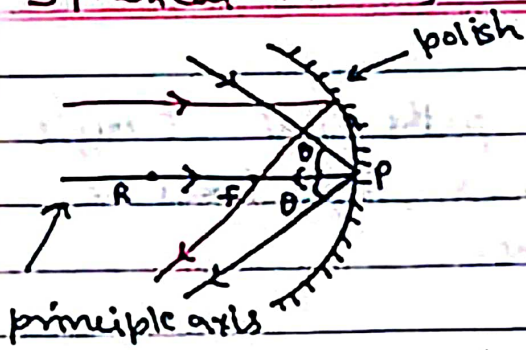 polish
θ
P
R
F
θ
principle axis